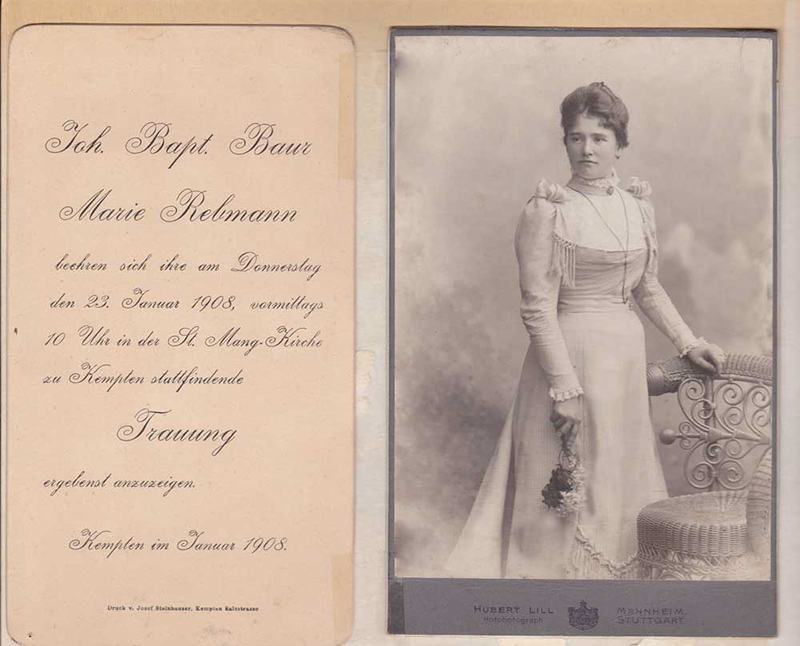 Joh. Bapt. Baur
Marie Rebmann
beehren sich ihre am Donnerstag
den 23. Januar 1908, vormittags
10 Uhr in der St. Mang-Kirche
zu Kempten stattfindende
Trauung
ergebenst anzuzeigen.
Kempten im Januar 1908.
Druck v. Josef Steinhauser, Kempten Salzstrasse
HUBERT LILL
Hofphotograph
MANNHEIM.
STUTTGART